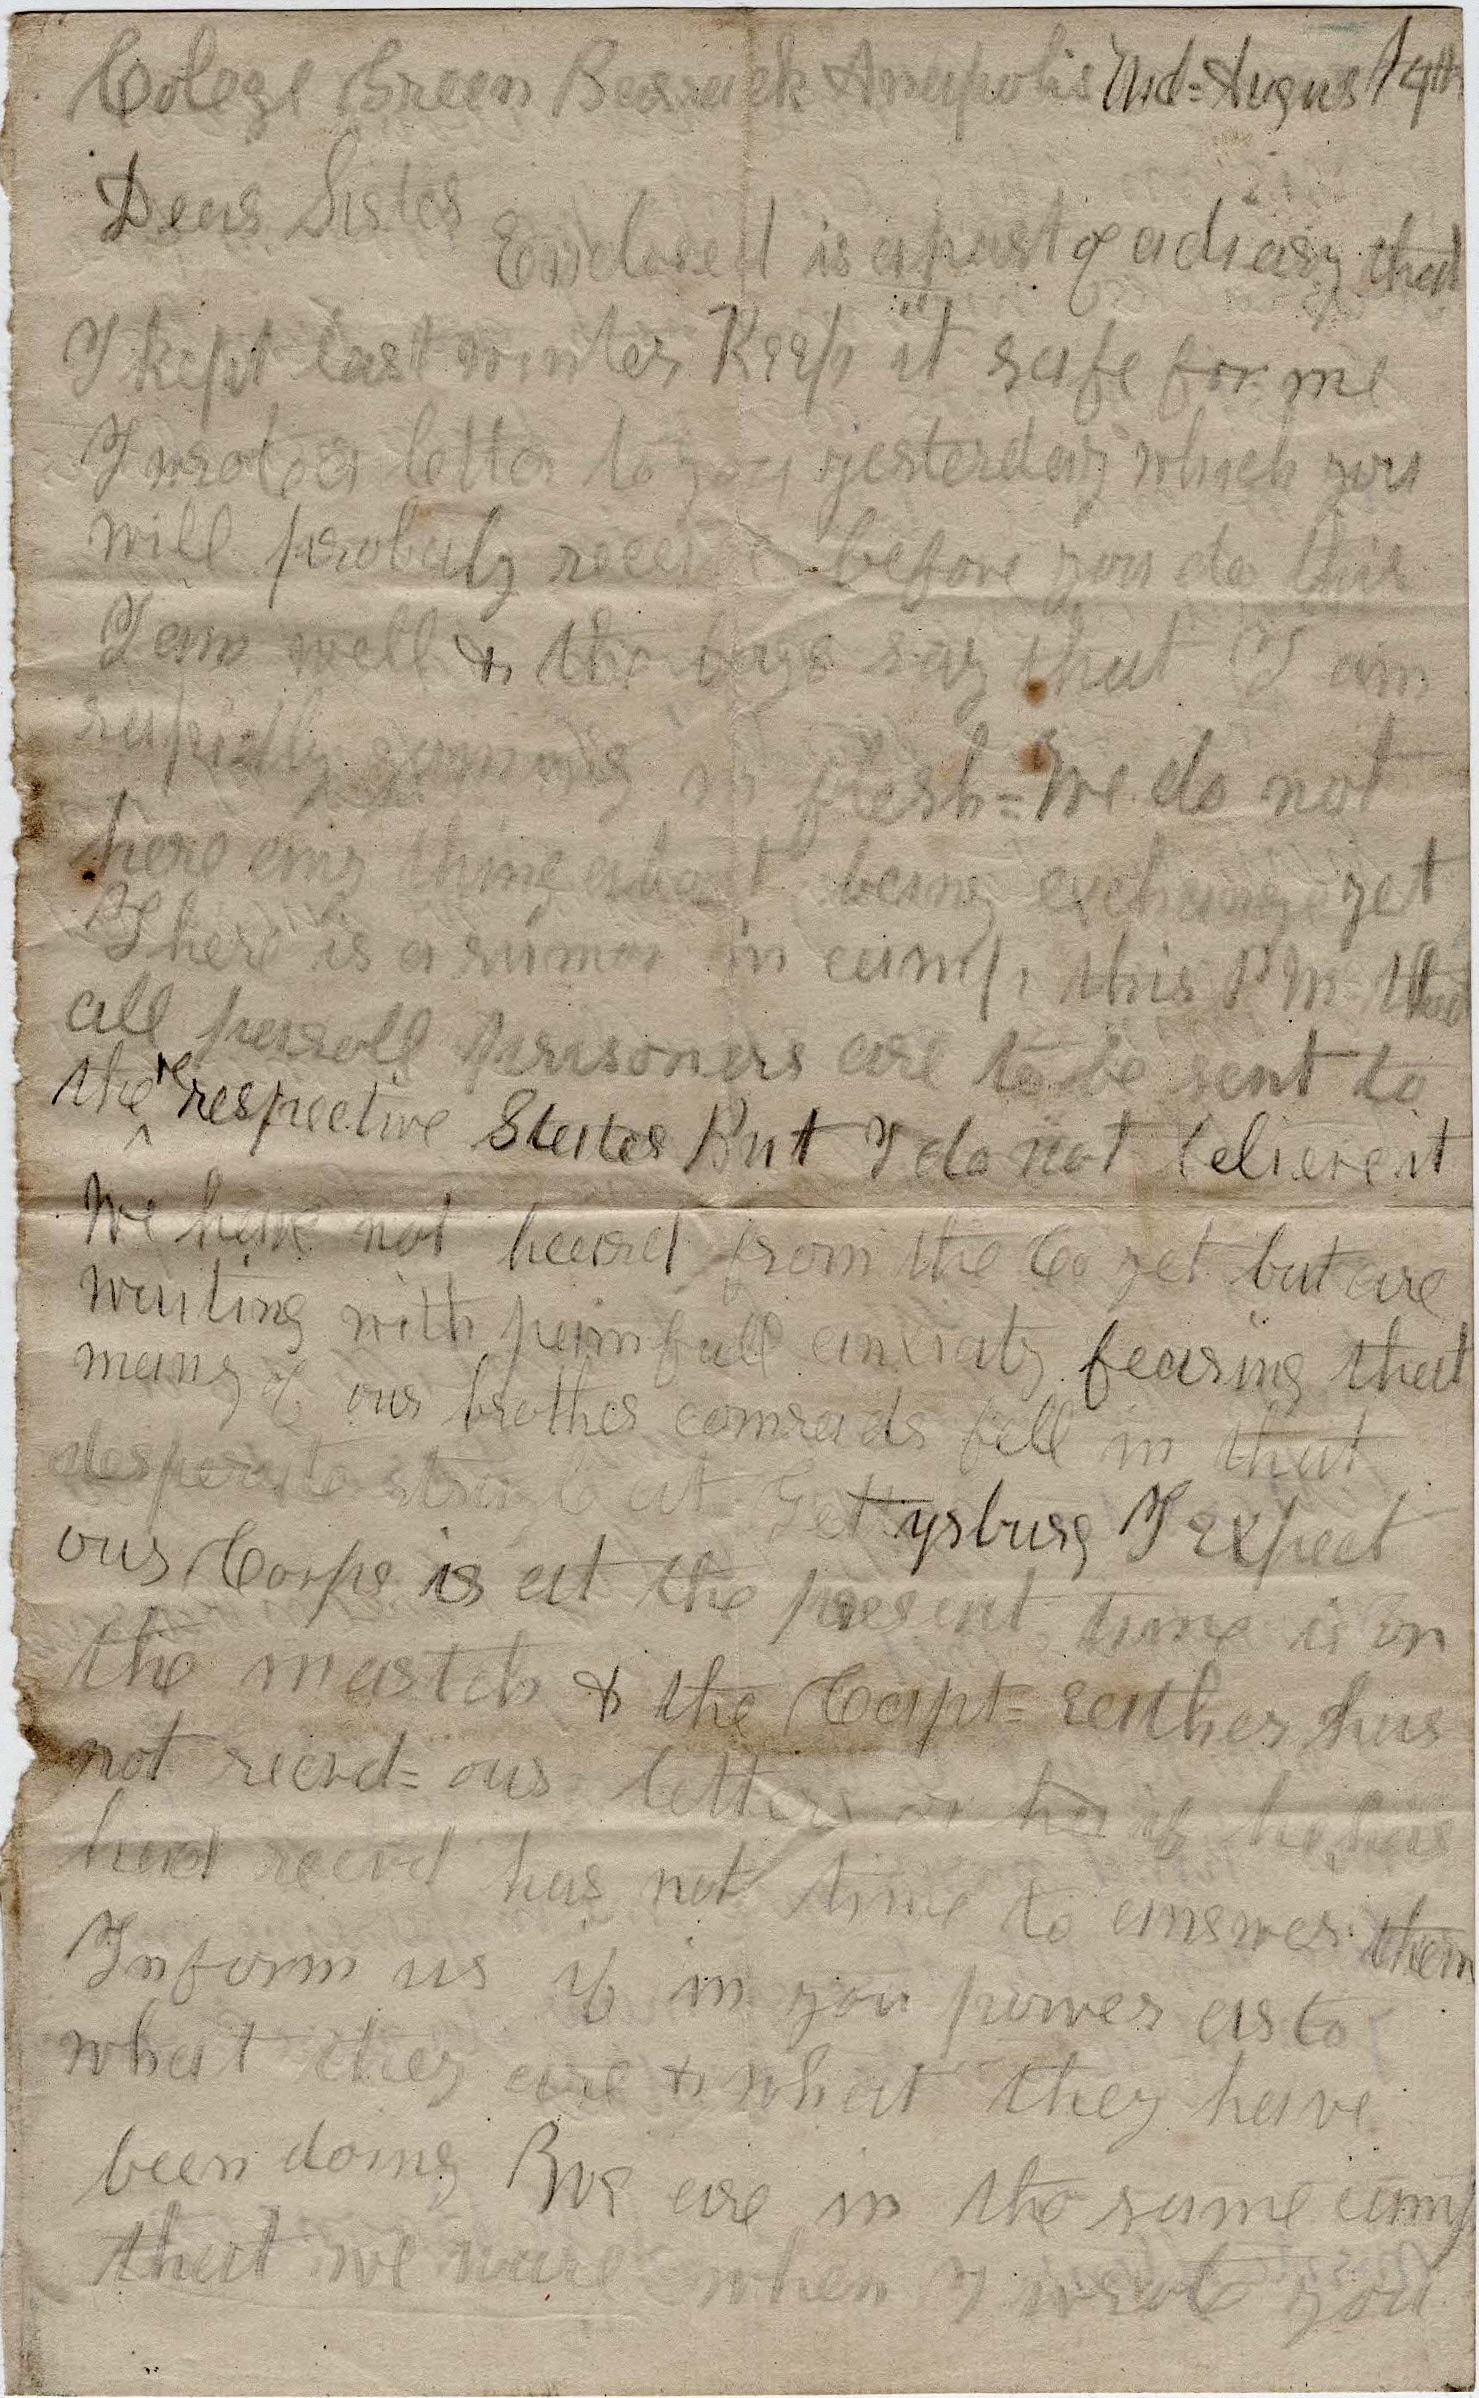 Colege Green Barrack Anapolis Md = Augus 14th
Dear Sister
Enclosed is a part of a diary that
I kept last winter Keep it safe for me
I wrote a letter to you yesterday which you
will probaly receive before you do this
I am well & the boys say that I am
rapidly gaining in flesh = We do not
here any thing about being exchange yet
There is a rumor in camp this P M that
all paroll prisoners are to be sent to
there respective States But I do not believe it
We have not heard from the Co yet but are
waiting with painfull anxiaty fearing that
many of our brother comrads fell in that
desperate at Gettysburg I expect
our Corps is at the present time is on
the martch & the Capt = eather has
not recevd = our letters or if he has
had recevd has not time to answer them
Inform us if in you power as to
what they are & what they have
been doing We are in the same camp
that we ware when I wrote you